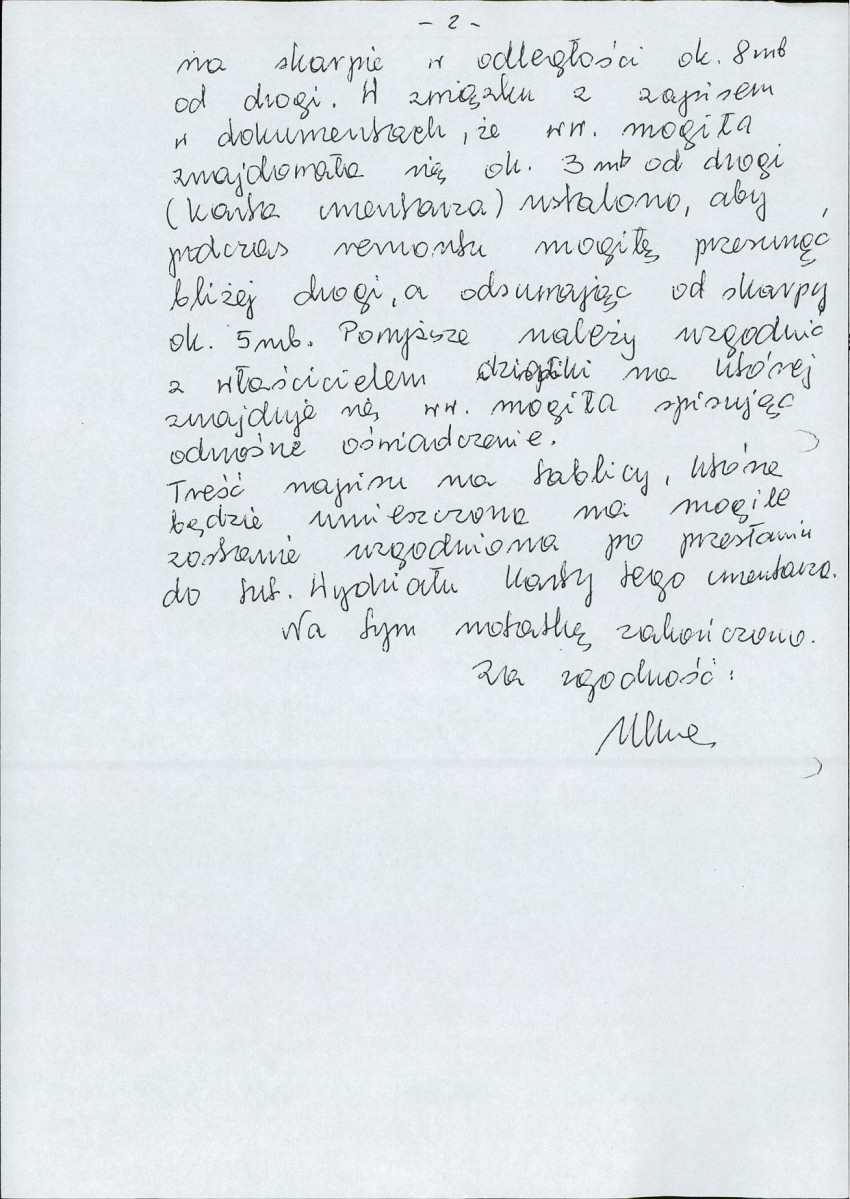 - 2 -
na skarpie w odległości ok. 8 mb
od drogi. W związku z zapisem
w dokumentach, że ww. mogiła
znajdowała się ok. 3 mb od drogi
(karta cmentarza) ustalono, aby
podczas remontu mogiłę przesunąć
bliżej drogi, a odsuwając od skarpy
ok. 5 mb. Powyższe należy uzgodnić
z właścicielem działki na której
znajduje się ww. mogiła spisując
odnośne oświadczenie.
Treść napisu na tablicy, które
będzie umieszczona na mogile
zostanie uzgodniona po przesłaniu
do tut. Wydziału karty tego cmentarza.
Na tym notatkę zakończono.
Za zgodność: